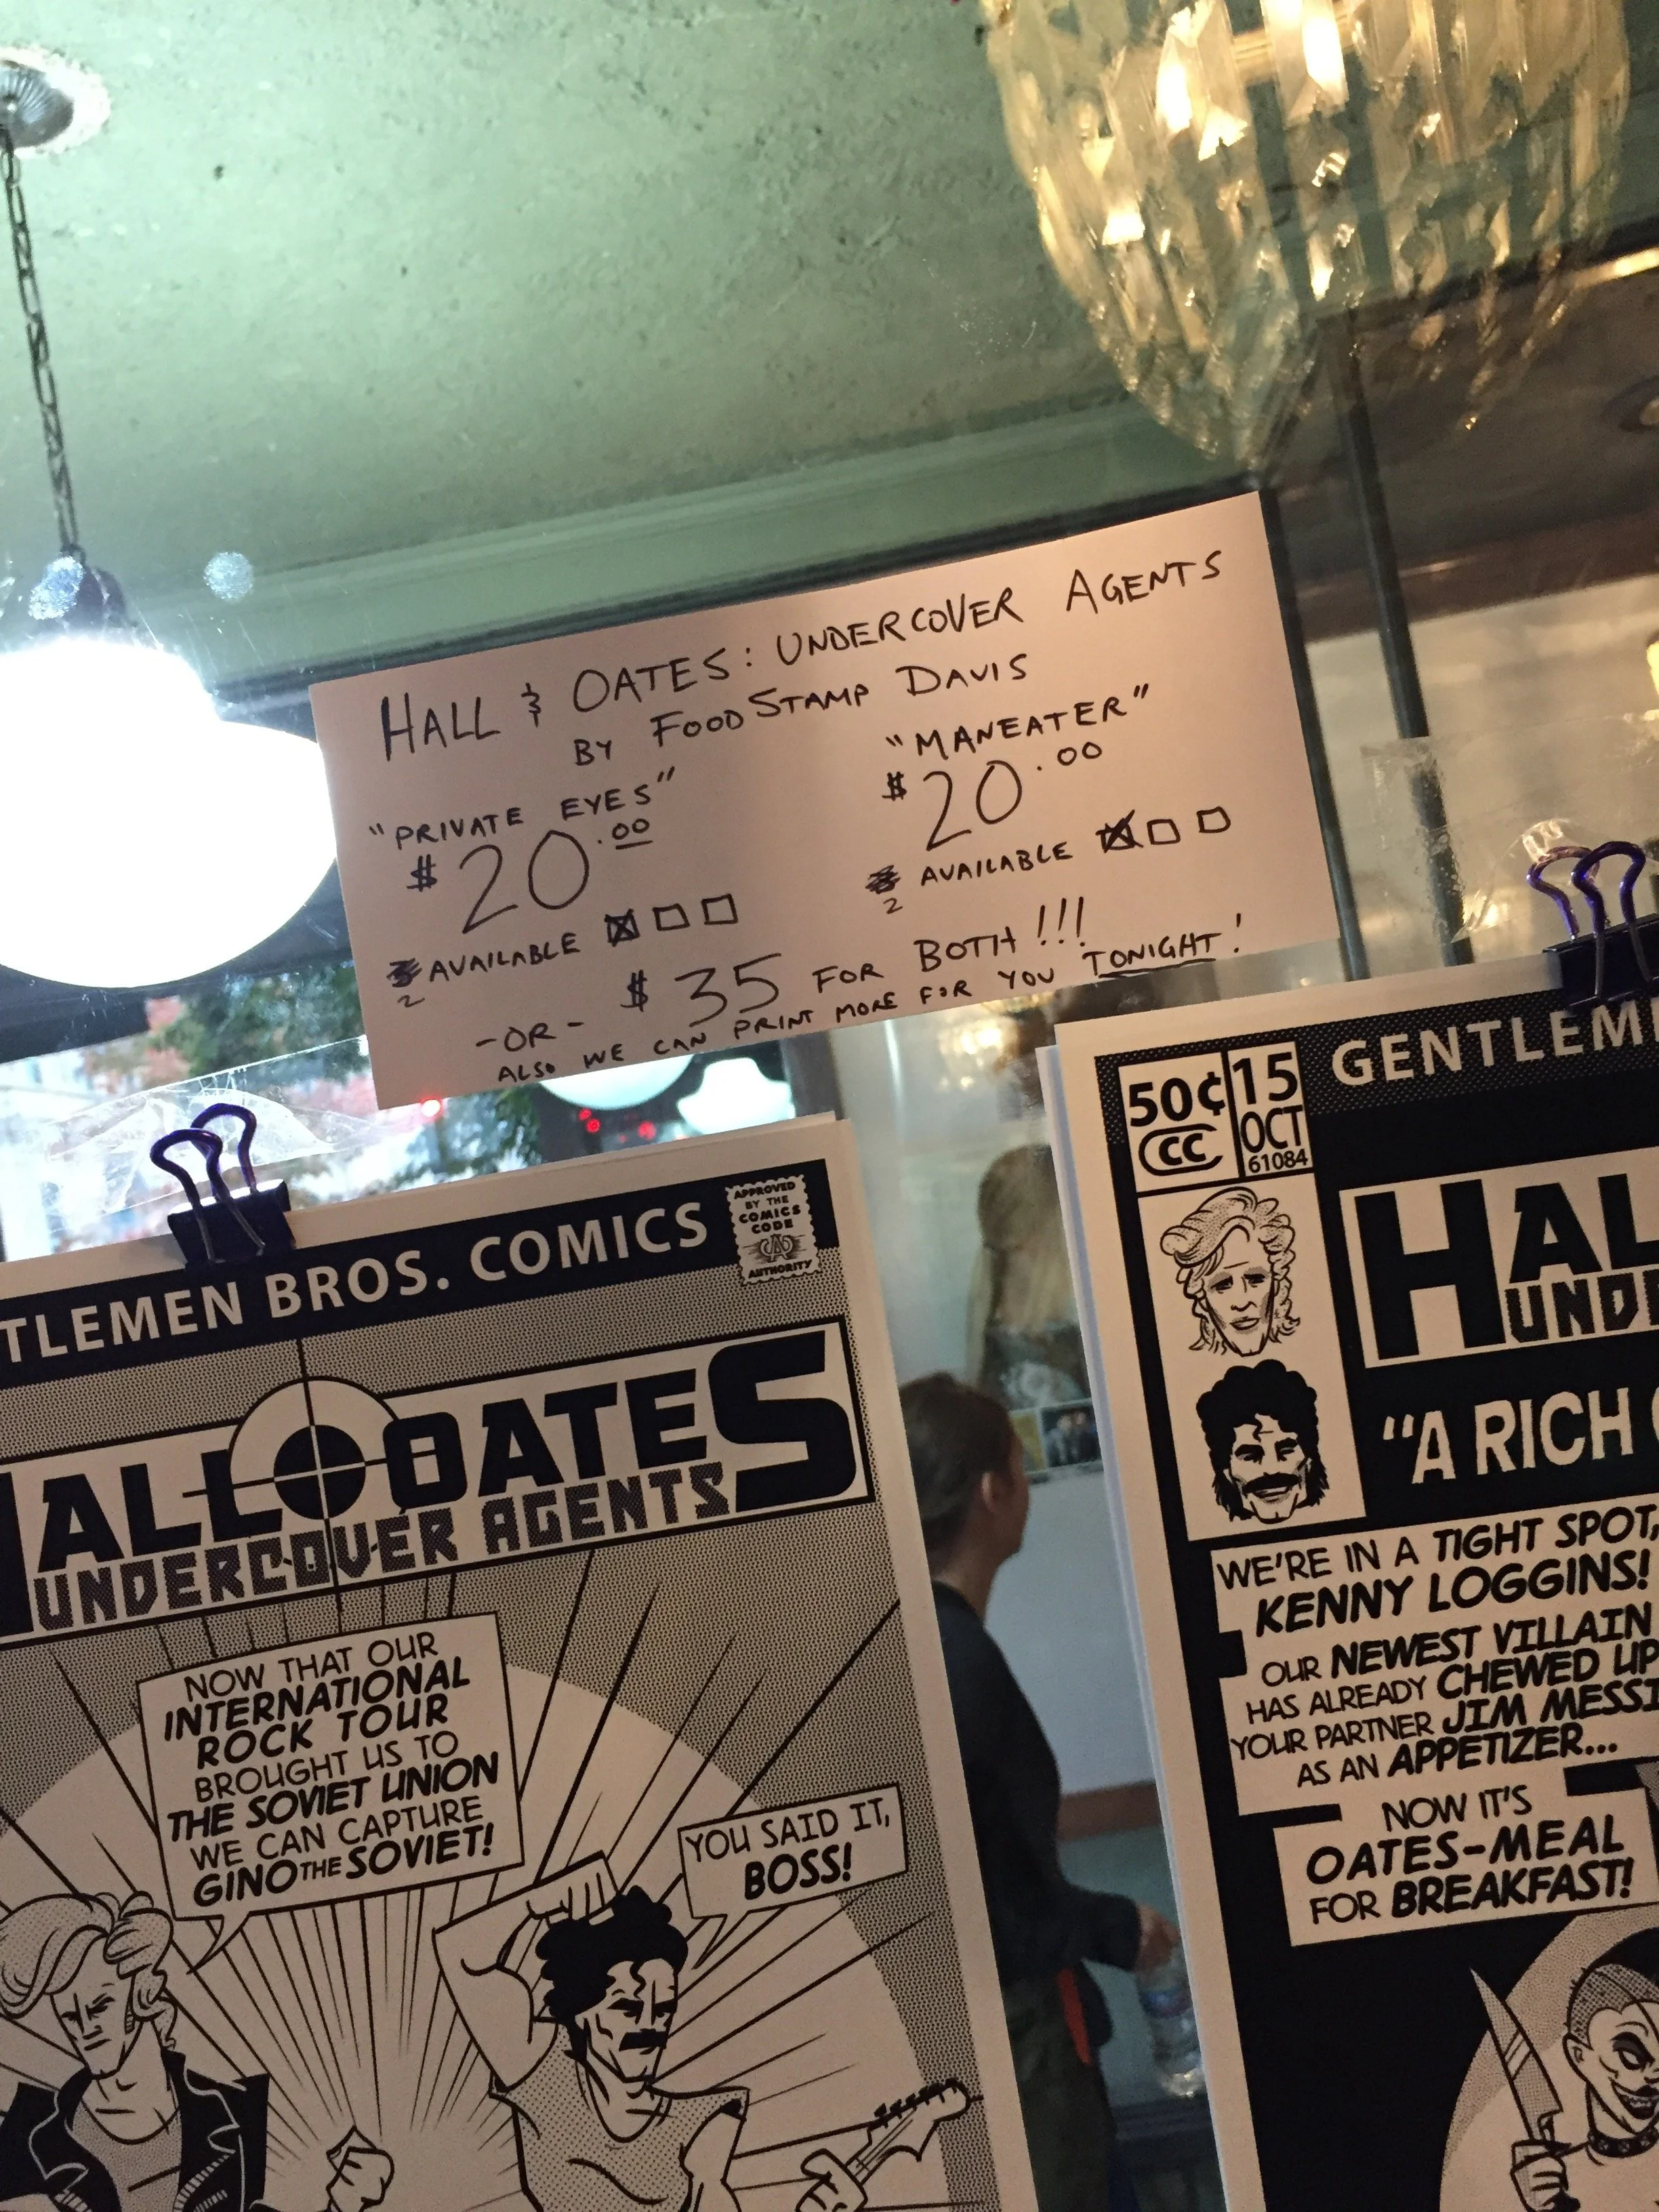 HALL & OATES: UNDERCOVER AGENTS
BY FOOD STAMP DAVIS
"PRIVATE EYES"
$20.00
2 AVAILABLE
"MANEATER"
$20.00
2 AVAILABLE
-OR- $35 FOR BOTH!!!
ALSO WE CAN PRINT MORE FOR YOU TONIGHT!
TLEMEN BROS. COMICS
APPROVED
BY THE
COMICS
CODE
CA
AUTHORITY
HALL OATES
UNDERCOVER AGENTS
NOW THAT OUR
INTERNATIONAL
ROCK TOUR
BROUGHT US TO
THE SOVIET UNION
WE CAN CAPTURE
GINO THE SOVIET!
YOU SAID IT,
BOSS!
GENTLEM
50¢
CC
15
OCT
61084
HAL
UNDE
"A RICH
WE'RE IN A TIGHT SPOT,
KENNY LOGGINS!
OUR NEWEST VILLAIN
HAS ALREADY CHEWED UP
YOUR PARTNER JIM MESSI
AS AN APPETIZER...
NOW IT'S
OATES-MEAL
FOR BREAKFAST!